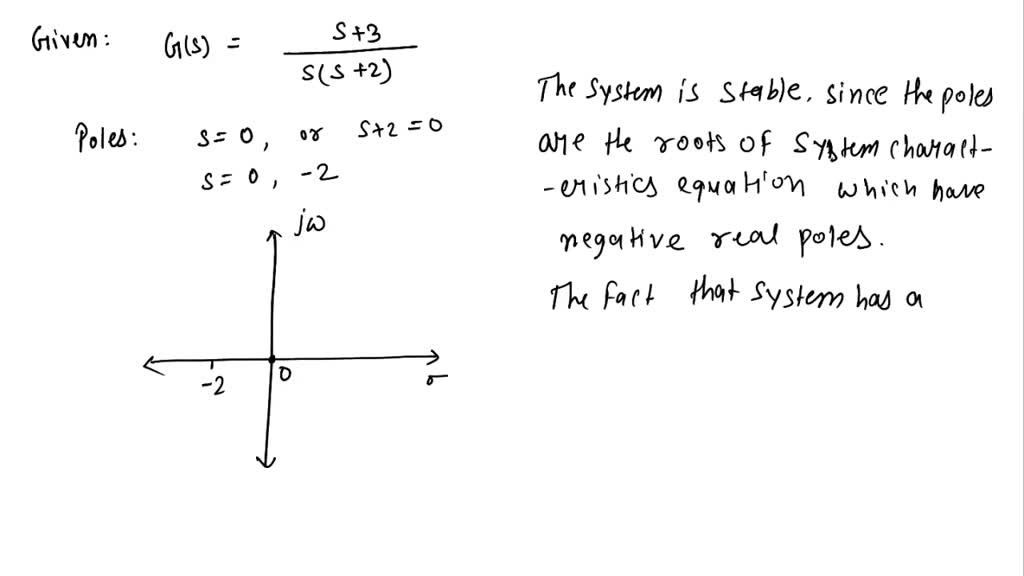 Given: G(s) = S+3
s(s+2)
Poles: s=0, or s+2=0
s=0, -2
jω
-2 0 σ
The system is stable. since the poles
are the roots of system charact-
-eristics equation which have
negative real poles.
The fact that system has a